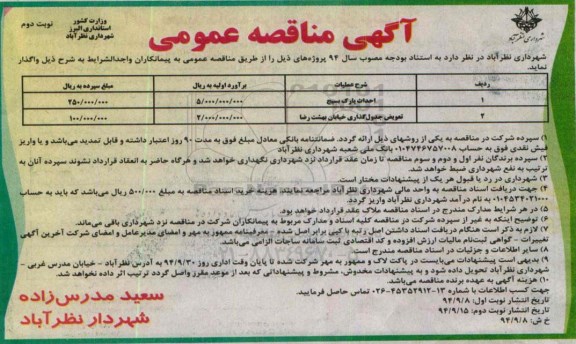 وزارت کشور
استانداری البرز
شهرداری نظرآباد
نوبت دوم
آگهی مناقصه عمومی
شهرداری نظرآباد
شهرداری نظرآباد در نظر دارد به استناد بودجه مصوب سال ۹۴ پروژه‌های ذیل را از طریق مناقصه عمومی به پیمانکاران واجدالشرایط به شرح ذیل واگذار
نماید.
ردیف شرح عملیات برآورد اولیه به ریال مبلغ سپرده به ریال
۱ احداث پارک بسیج ۵/۰۰۰/۰۰۰/۰۰۰ ۲۵۰/۰۰۰/۰۰۰
۲ تعویض جدول‌گذاری خیابان بهشت رضا ۲/۰۰۰/۰۰۰/۰۰۰ ۱۰۰/۰۰۰/۰۰۰
۱) سپرده شرکت در مناقصه به یکی از روشهای ذیل ارائه گردد. ضمانتنامه بانکی معادل مبلغ فوق به مدت ۹۰ روز اعتبار داشته و قابل تمدید می‌باشد و یا واریز
فیش نقدی فوق به حساب ۰۱۰۴۷۴۶۷۵۷۰۰۸ بانک ملی شعبه شهرداری نظرآباد
۲) سپرده برندگان نفر اول و دوم و سوم مناقصه تا زمان عقد قرارداد نزد شهرداری نگهداری خواهد شد و هرگاه حاضر به انعقاد قرارداد نشوند سپرده آنان به
ترتیب به نفع شهرداری ضبط خواهد شد.
۳) شهرداری در رد یا قبول هر یک از پیشنهادات مختار است.
۴) جهت دریافت اسناد مناقصه به واحد مالی شهرداری نظرآباد مراجعه نمایند. هزینه خرید اسناد مناقصه به مبلغ ۵۰۰/۰۰۰ ریال می‌باشد که باید به حساب
۰۱۰۴۵۴۴۰۲۱۰۰۰ به نام درآمد شهرداری نظرآباد واریز گردد.
۵) در هر شرایط مدارک مندرج در اسناد مناقصه ملاک عقد قرارداد خواهد بود.
۶) توضیح اینکه به غیر از سپرده شرکت در مناقصه کلیه اسناد و مدارک مربوط به پیمانکاران شرکت در مناقصه نزد شهرداری باقی می‌ماند.
۷) لازم به ذکر است هنگام دریافت اسناد داشتن اصل رتبه با کپی برابر اصل شده - معرفینامه ممهور به مهر و امضای مدیرعامل و امضای شرکت آخرین آگهی
تغییرات - گواهی ثبت‌نام مالیات ارزش افزوده و کد اقتصادی ثبت سامانه ساجات الزامی می‌باشد.
۸) سایر اطلاعات و جزئیات در اسناد مناقصه مندرج است.
۹) بدیهی است پیشنهادات می‌بایست در پاکت لاک و ممهور به مهر شرکت شده تا پایان وقت اداری روز ۹۴/۹/۳۰ به آدرس نظرآباد - خیابان مدرس غربی -
شهرداری نظرآباد تحویل داده شود و به پیشنهادات مخدوش، مشروط و پیشنهاداتی که بعد از موعد مقرر واصل گردد ترتیب اثر داده نخواهد شد.
۱۰) هزینه آگهی به عهده برنده مناقصه می‌باشد.
جهت کسب اطلاعات با شماره ۱۳-۴۵۳۵۲۹۱۲-۰۲۶ تماس حاصل فرمایید.
تاریخ انتشار نوبت اول: ۹۴/۹/۸
تاریخ انتشار نوبت دوم: ۹۴/۹/۱۵
خ ش: ۹۴/۹/۸
سعید مدرس‌زاده
شهردار نظرآباد